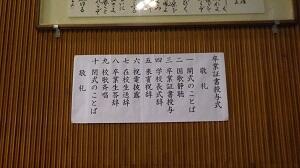 卒業証書授与式
敬礼
一 開式のことば
二 国歌静聴
三 卒業証書授与
四 学校長式辞
五 来賓祝辞
六 祝電披露
七 在校生送辞
八 卒業生答辞
九 校歌斉唱
十 閉式のことば
敬礼